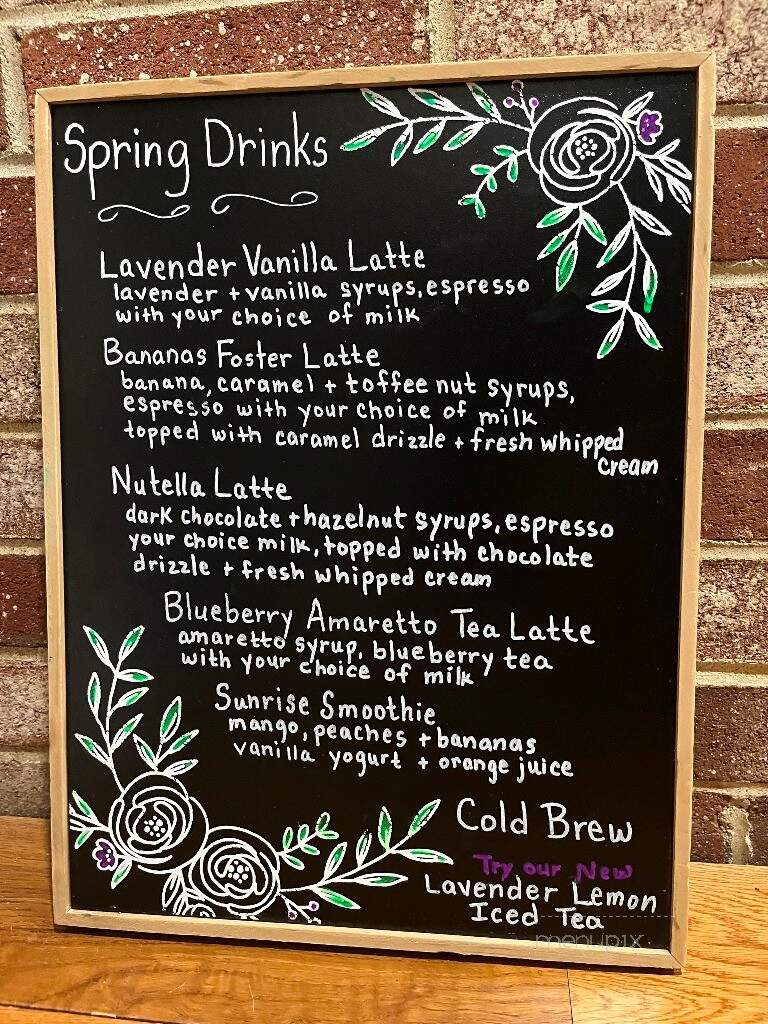 Spring Drinks
Lavender Vanilla Latte
lavender + vanilla syrups, espresso
with your choice of milk
Bananas Foster Latte
banana, caramel + toffee nut syrups,
espresso with your choice of milk
topped with caramel drizzle + fresh whipped
cream
Nutella Latte
dark chocolate + hazelnut syrups, espresso
your choice milk, topped with chocolate
drizzle + fresh whipped cream
Blueberry Amaretto Tea Latte
amaretto syrup, blueberry tea
with your choice of milk
Sunrise Smoothie
mango, peaches + bananas
vanilla yogurt + orange juice
Cold Brew
Try our New
Lavender Lemon
Iced Tea
menupix